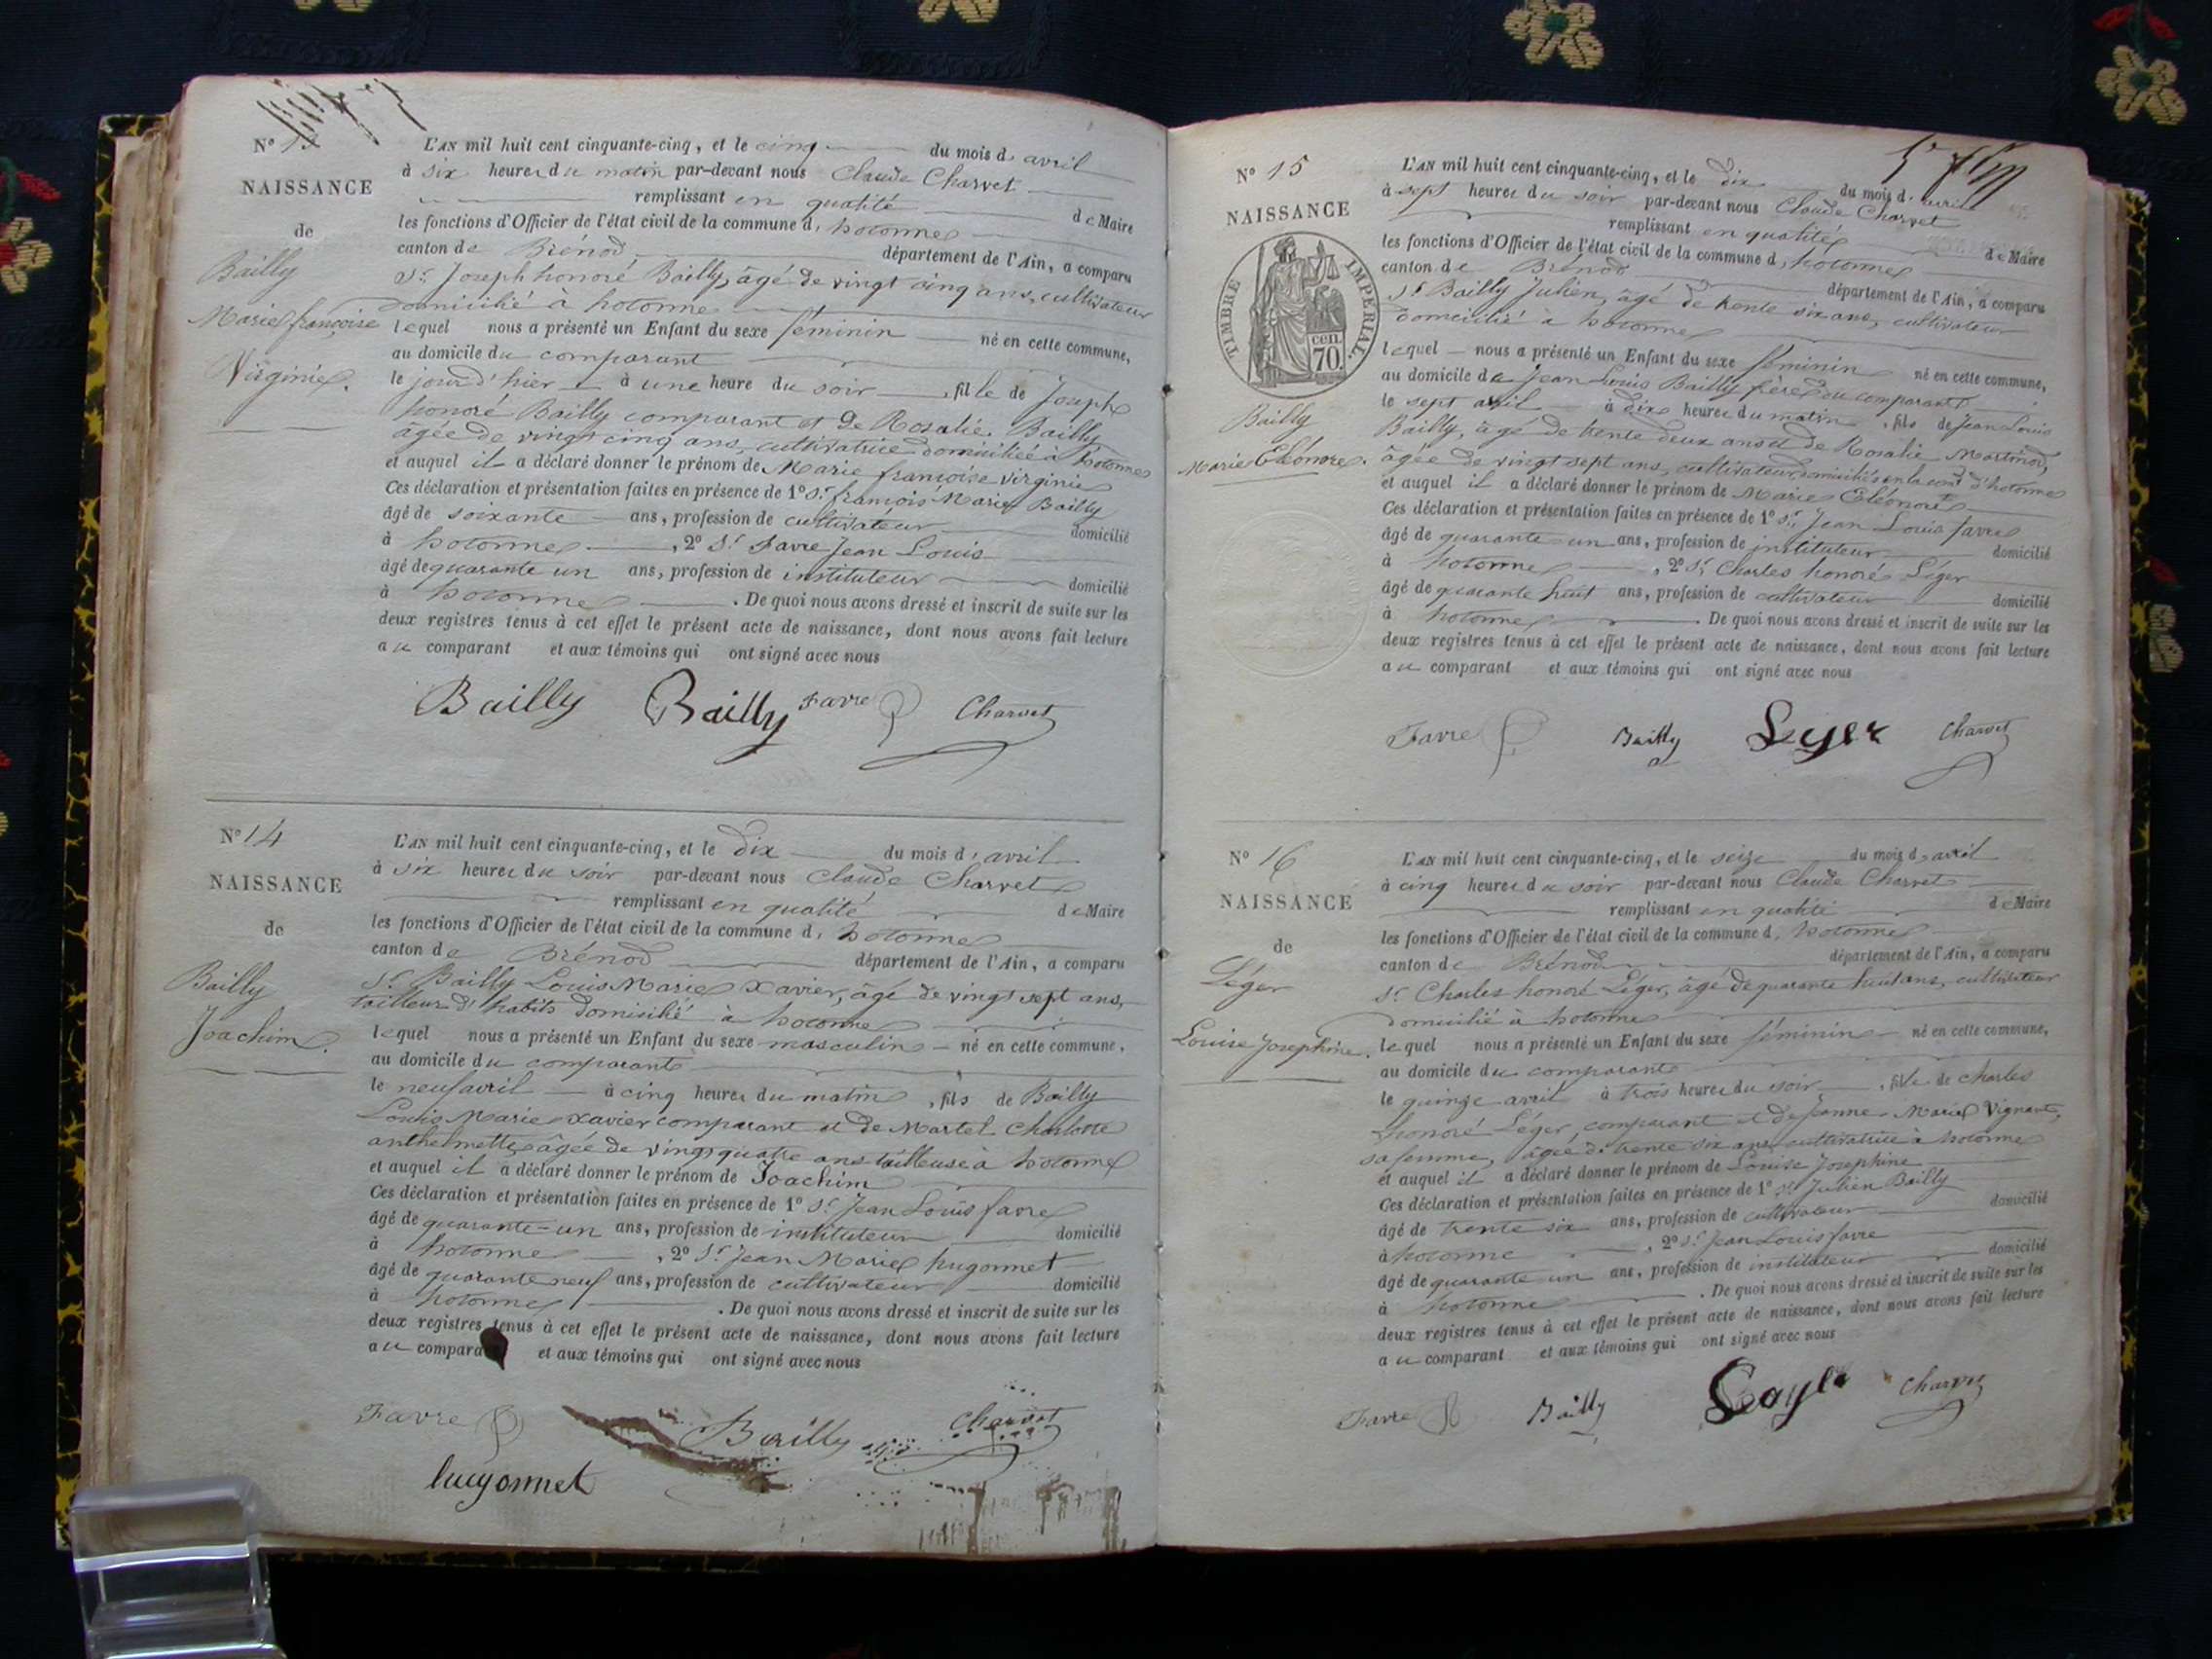 Nº 13
NAISSANCE
de
Bailly
Marie françoise
Virginie.
L'AN mil huit cent cinquante-cinq, et le cinq du mois d' avril
à six heures du matin par-devant nous Claude Charvet
remplissant en qualité de Maire
les fonctions d'Officier de l'état civil de la commune d' hotonnes
canton de Brénod département de l'Ain, a comparu
Sr. Joseph honoré Bailly, âgé de vingt cinq ans, cultivateur
domicilié à hotonnes
lequel nous a présenté un Enfant du sexe féminin né en cette commune,
au domicile du comparant
le jour d'hier à une heure du soir, fille de Joseph
honoré Bailly comparant et de Rosalie Bailly
âgée de vingt cinq ans, cultivatrice domiciliée à hotonnes
et auquel il a déclaré donner le prénom de Marie françoise virginie
Ces déclaration et présentation faites en présence de 1º Sr. françois Marie Bailly
âgé de soixante ans, profession de cultivateur domicilié
à hotonnes, 2º Sr. Favre Jean Louis
âgé de quarante un ans, profession de instituteur domicilié
à hotonnes. De quoi nous avons dressé et inscrit de suite sur les
deux registres tenus à cet effet le présent acte de naissance, dont nous avons fait lecture
au comparant et aux témoins qui ont signé avec nous
Bailly Bailly Favre Charvet
Nº 14
NAISSANCE
de
Bailly
Joachim.
L'AN mil huit cent cinquante-cinq, et le dix du mois d' avril
à six heures du soir par-devant nous Claude Charvet
remplissant en qualité de Maire
les fonctions d'Officier de l'état civil de la commune d' hotonnes
canton de Brénod département de l'Ain, a comparu
Sr. Bailly Louis Marie Xavier, âgé de vingt sept ans,
tailleur d'habits domicilié à hotonnes
lequel nous a présenté un Enfant du sexe masculin né en cette commune,
au domicile du comparant
le neuf avril à cinq heures du matin, fils de Bailly
Louis Marie Xavier comparant et de Martel Charlotte
anthelmette, âgée de vingt quatre ans tailleuse à hotonnes
et auquel il a déclaré donner le prénom de Joachim
Ces déclaration et présentation faites en présence de 1º Sr. Jean Louis favre
âgé de quarante-un ans, profession de instituteur domicilié
à hotonnes, 2º Sr. Jean Marie hugonnet
âgé de quarante neuf ans, profession de cultivateur domicilié
à hotonnes. De quoi nous avons dressé et inscrit de suite sur les
deux registres tenus à cet effet le présent acte de naissance, dont nous avons fait lecture
au compara et aux témoins qui ont signé avec nous
Favre Bailly Charvet
hugonnet
Nº 15
NAISSANCE
TIMBRE IMPÉRIAL.
70 cen.
Bailly
Marie Eléonore.
L'AN mil huit cent cinquante-cinq, et le dix du mois d' avril
à sept heures du soir par-devant nous Claude Charvet
remplissant en qualité de Maire
les fonctions d'Officier de l'état civil de la commune d' hotonnes
canton de Brénod département de l'Ain, a comparu
Sr Bailly Julien, âgé de trente six ans, cultivateur
domicilié à hotonnes
lequel nous a présenté un Enfant du sexe féminin né en cette commune,
au domicile de Jean Louis Bailly frère du comparant
le sept avril à dix heures du matin, fils de Jean Louis
Bailly, âgé de trente deux ans et de Rosalie Martinod,
âgée de vingt sept ans, cultivateurs domiciliés en la comne d'hotonnes
et auquel il a déclaré donner le prénom de Marie Eléonore
Ces déclaration et présentation faites en présence de 1º Sr. Jean Louis favre
âgé de quarante un ans, profession de instituteur domicilié
à hotonnes, 2º Sr. Charles honoré Léger
âgé de quarante huit ans, profession de cultivateur domicilié
à hotonnes. De quoi nous avons dressé et inscrit de suite sur les
deux registres tenus à cet effet le présent acte de naissance, dont nous avons fait lecture
au comparant et aux témoins qui ont signé avec nous
Favre Bailly Leger Charvet
Nº 16
NAISSANCE
de
Léger
Louise Josephine.
L'AN mil huit cent cinquante-cinq, et le seize du mois d' avril
à cinq heures du soir par-devant nous Claude Charvet
remplissant en qualité de Maire
les fonctions d'Officier de l'état civil de la commune d' hotonnes
canton de Brénod département de l'Ain, a comparu
Sr Charles honoré Léger, âgé de quarante huit ans, cultivateur
domicilié à hotonnes
lequel nous a présenté un Enfant du sexe féminin né en cette commune,
au domicile du comparant
le quinze avril à trois heures du soir, fille de Charles
honoré Léger, comparant et de Jeanne Marie Vignant,
sa femme, âgée de trente six ans, cultivatrice à hotonnes
et auquel il a déclaré donner le prénom de Louise Josephine
Ces déclaration et présentation faites en présence de 1º Sr Julien Bailly
âgé de trente six ans, profession de cultivateur domicilié
à hotonne, 2º Sr. Jean Louis favre
âgé de quarante un ans, profession de instituteur domicilié
à hotonne. De quoi nous avons dressé et inscrit de suite sur les
deux registres tenus à cet effet le présent acte de naissance, dont nous avons fait lecture
au comparant et aux témoins qui ont signé avec nous
Favre Bailly Charvet